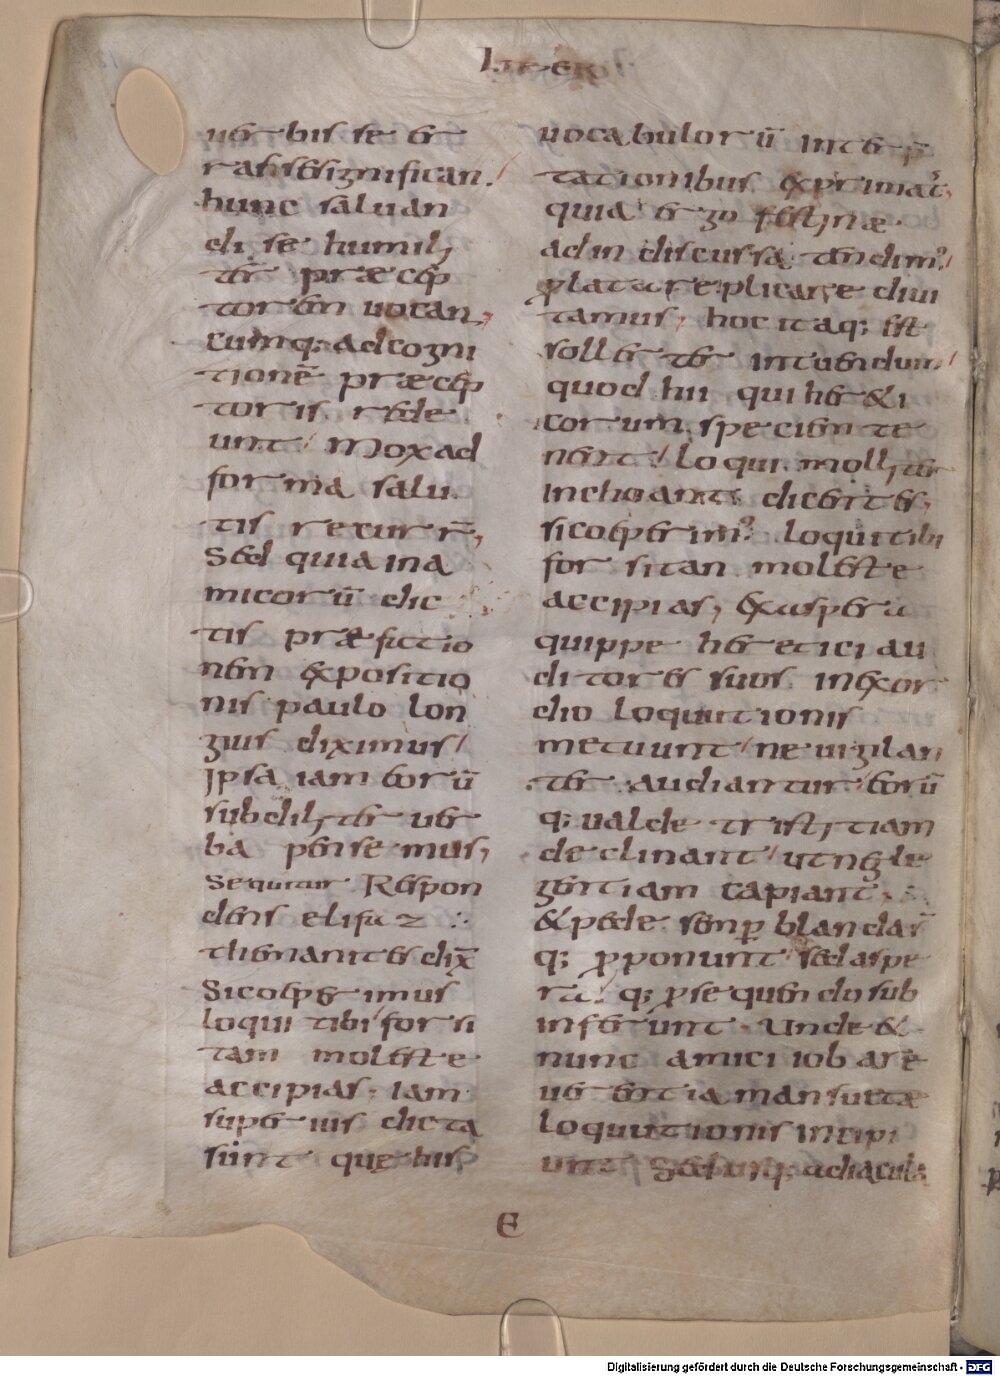 LIBER
uerbis se er
rasse significan.
hunc saluan
di se humili
ter præcep
torem uocan,
cumq; ad cogni
tionē præcep
toris rede
unt / Mox ad
forma salu
tis recurr̄,
Sed quia ina
micorū dic
tis præfatio
nem expositio
nis paulo lon
gius diximus /
Ipsa iam eorū
subtiliter uer
ba pensemus,
Sequitur Respon
dens elifaz
themanites dix̄
Si coeperimus
loqui tibi forsi
tam moleste
accipias. Iam
superius dicta
sunt que his
uocabulorū interp̄
tationibus exprimat̄,
quia ergo festinæ
ad indiscussa tendim̕
plata replicare diui
tamus, hoc itaq; est
sollerter intuendum /
quod hii qui hereti
corum speciem te
nent / loqui molliter
inchoant dicentes,
si coeperim̕ loqui tibi
forsitan moleste
accipias, exaspera
quippe heretici au
ditores suos in exor
dio loquutionis
metuunt / ne uigilan
ter audiantur / eorū
q; ualde tristitiam
declinant / ut negle
gentiam capiant.
& pede semp̲ blandas̄
q; p̲ponunt / sed aspe
ra q; p̲sequendo sub
inferunt. Unde &
nunc amici iob are
uerentia mansuetæ
loquutionis incipi
unt Sed usq; ad iacula
E
Digitalisierung gefördert durch die Deutsche Forschungsgemeinschaft - DFG